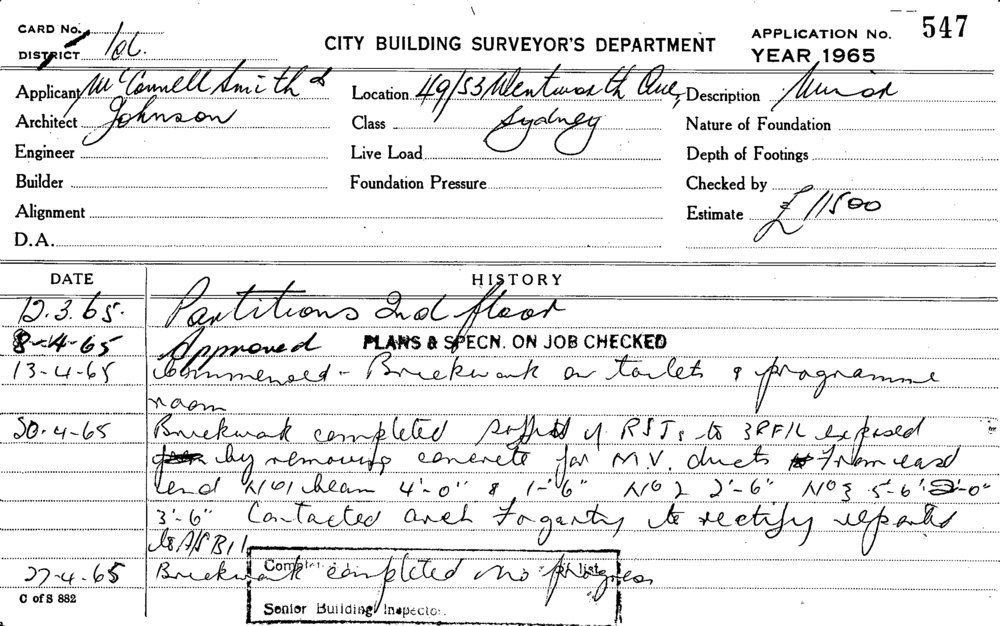 CARD No.
DISTRICT
CITY BUILDING SURVEYOR'S DEPARTMENT
APPLICATION No. 547
YEAR 1965
Applicant McConnell Smith &
Location 49/53 Wentworth Ave,
Description Minor
Architect Johnson
Class Sydney
Nature of Foundation
Engineer
Live Load
Depth of Footings
Builder
Foundation Pressure
Checked by
Alignment
Estimate £11500
D.A.
DATE HISTORY
12.3.65. Partitions 2nd floor
8-4-65 Approved PLANS & SPECN. ON JOB CHECKED
13-4-65 Commenced - Brickwork on toilets & programme
room
20.4-65 Brickwork completed soffit of RSJs to 3RF/L exposed
by removing concrete for M.V. ducts from east
end No1 beam 4'-0" & 1-'6" No 2 2'-6" No3 5-6"
3'-6" Contacted arch Fogarty to rectify reported
to
27-4-65 Brickwork completed no progress
list
Senior Building Inspector.
C of S 882